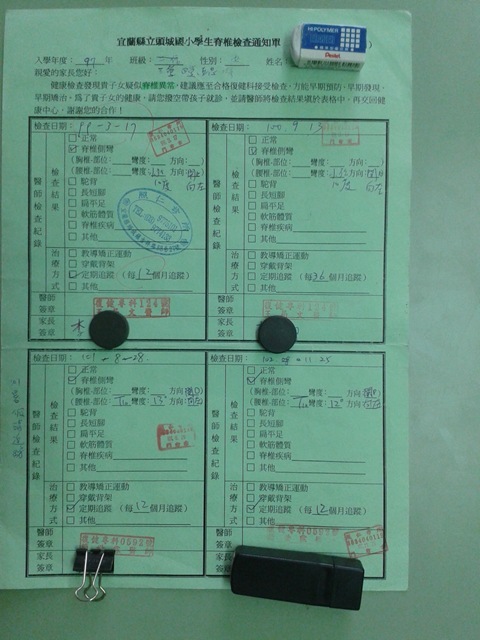 宜蘭縣立頭城國小學生脊椎檢查通知單
HI-POLYMER
Pentel
入學年度： 97 年 班級： 性別： 姓名
親愛的家長您好：
健康檢查發現貴子女疑似脊椎異常，建議應至合格復健科接受檢查，方能早期預防、早期發現、
早期矯治。為了貴子女的健康，請您撥空帶孩子就診，並請醫師將檢查結果填於表格中，再交回健
康中心，謝謝您的合作！
檢查日期： 99-3-17
醫師檢查紀錄
檢查結果
正常
脊椎側彎
(胸椎-部位： 彎度： 方向： )
(腰椎-部位： 彎度： 方向： )
駝背
長短腳
扁平足
軟筋體質
脊椎疾病
其他
治療方式
教導矯正運動
穿戴背架
定期追蹤（每12個月追蹤）
其他
醫師簽章
家長簽章
李
檢查日期： 100 9 13
醫師檢查紀錄
檢查結果
正常
脊椎側彎
(胸椎-部位： 彎度： 方向： )
(腰椎-部位： 彎度： 方向： )
向左
駝背
長短腳
扁平足
軟筋體質
脊椎疾病
其他
治療方式
教導矯正運動
穿戴背架
定期追蹤（每36個月追蹤）
其他
醫師簽章
家長簽章
檢查日期： 101-8-28
醫師檢查紀錄
檢查結果
正常
脊椎側彎
(胸椎-部位： 彎度： 方向： )
(腰椎-部位： 彎度：13° 方向： )
駝背
長短腳
扁平足
軟筋體質
脊椎疾病
其他
治療方式
教導矯正運動
穿戴背架
定期追蹤（每12個月追蹤）
其他
醫師簽章
復健專科0592號
家長簽章
檢查日期： 102 11 25
醫師檢查紀錄
檢查結果
正常
脊椎側彎
(胸椎-部位： 彎度： 方向： )
(腰椎-部位： 彎度：12° 方向： )
駝背
長短腳
扁平足
軟筋體質
脊椎疾病
其他
治療方式
教導矯正運動
穿戴背架
定期追蹤（每12個月追蹤）
其他
醫師簽章
復健專科0592號
家長簽章